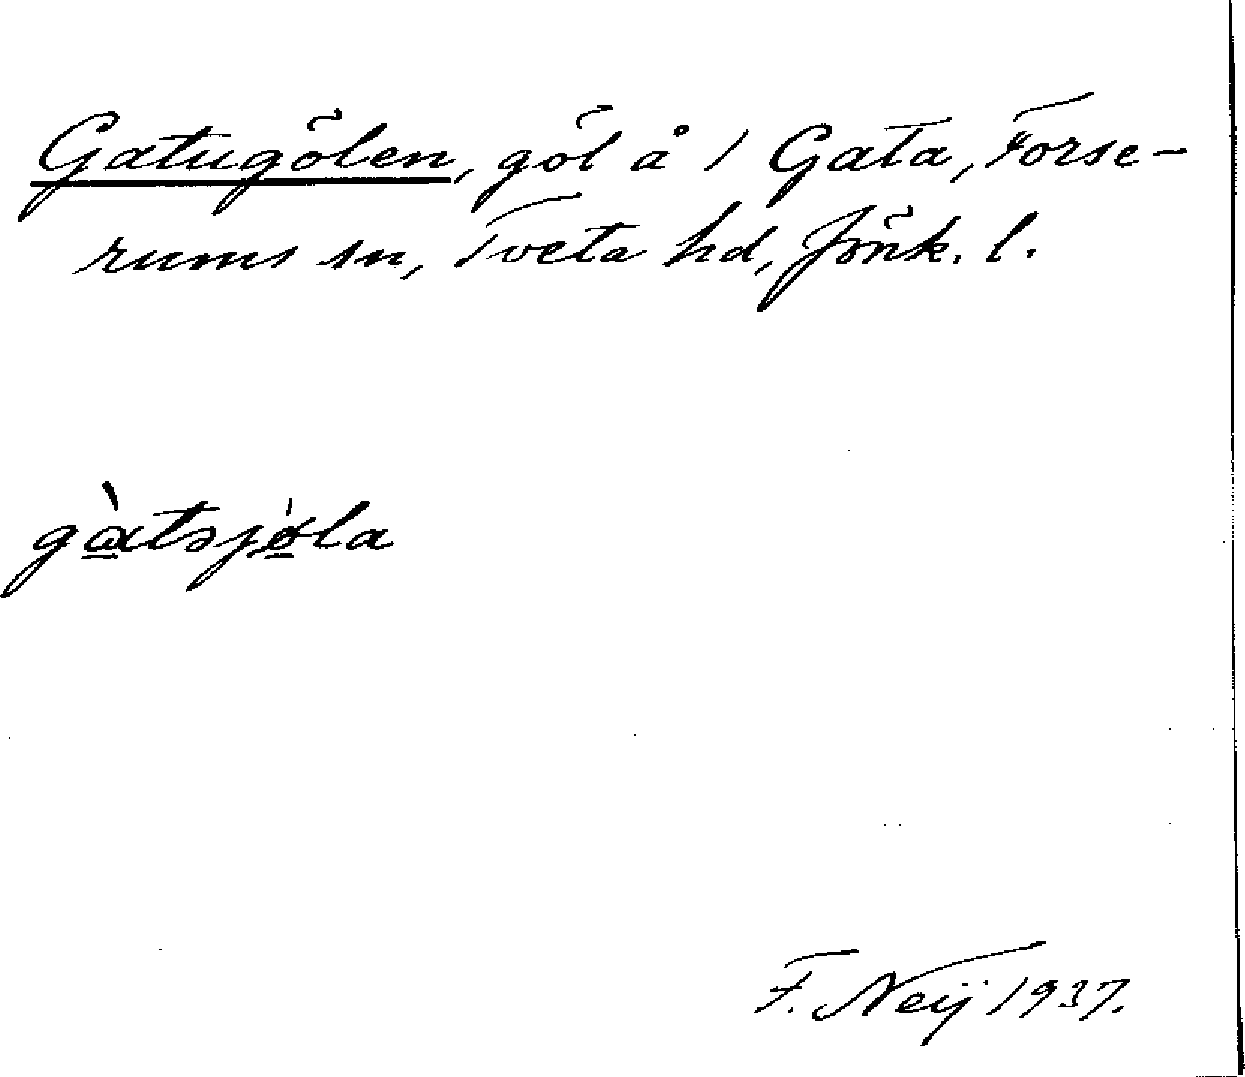 Gatugölen, göl å 1 Gata, Forse-
rums sn, Tveta hd, Jönk. l.
gàtəjǿla
F. Neij 1937.